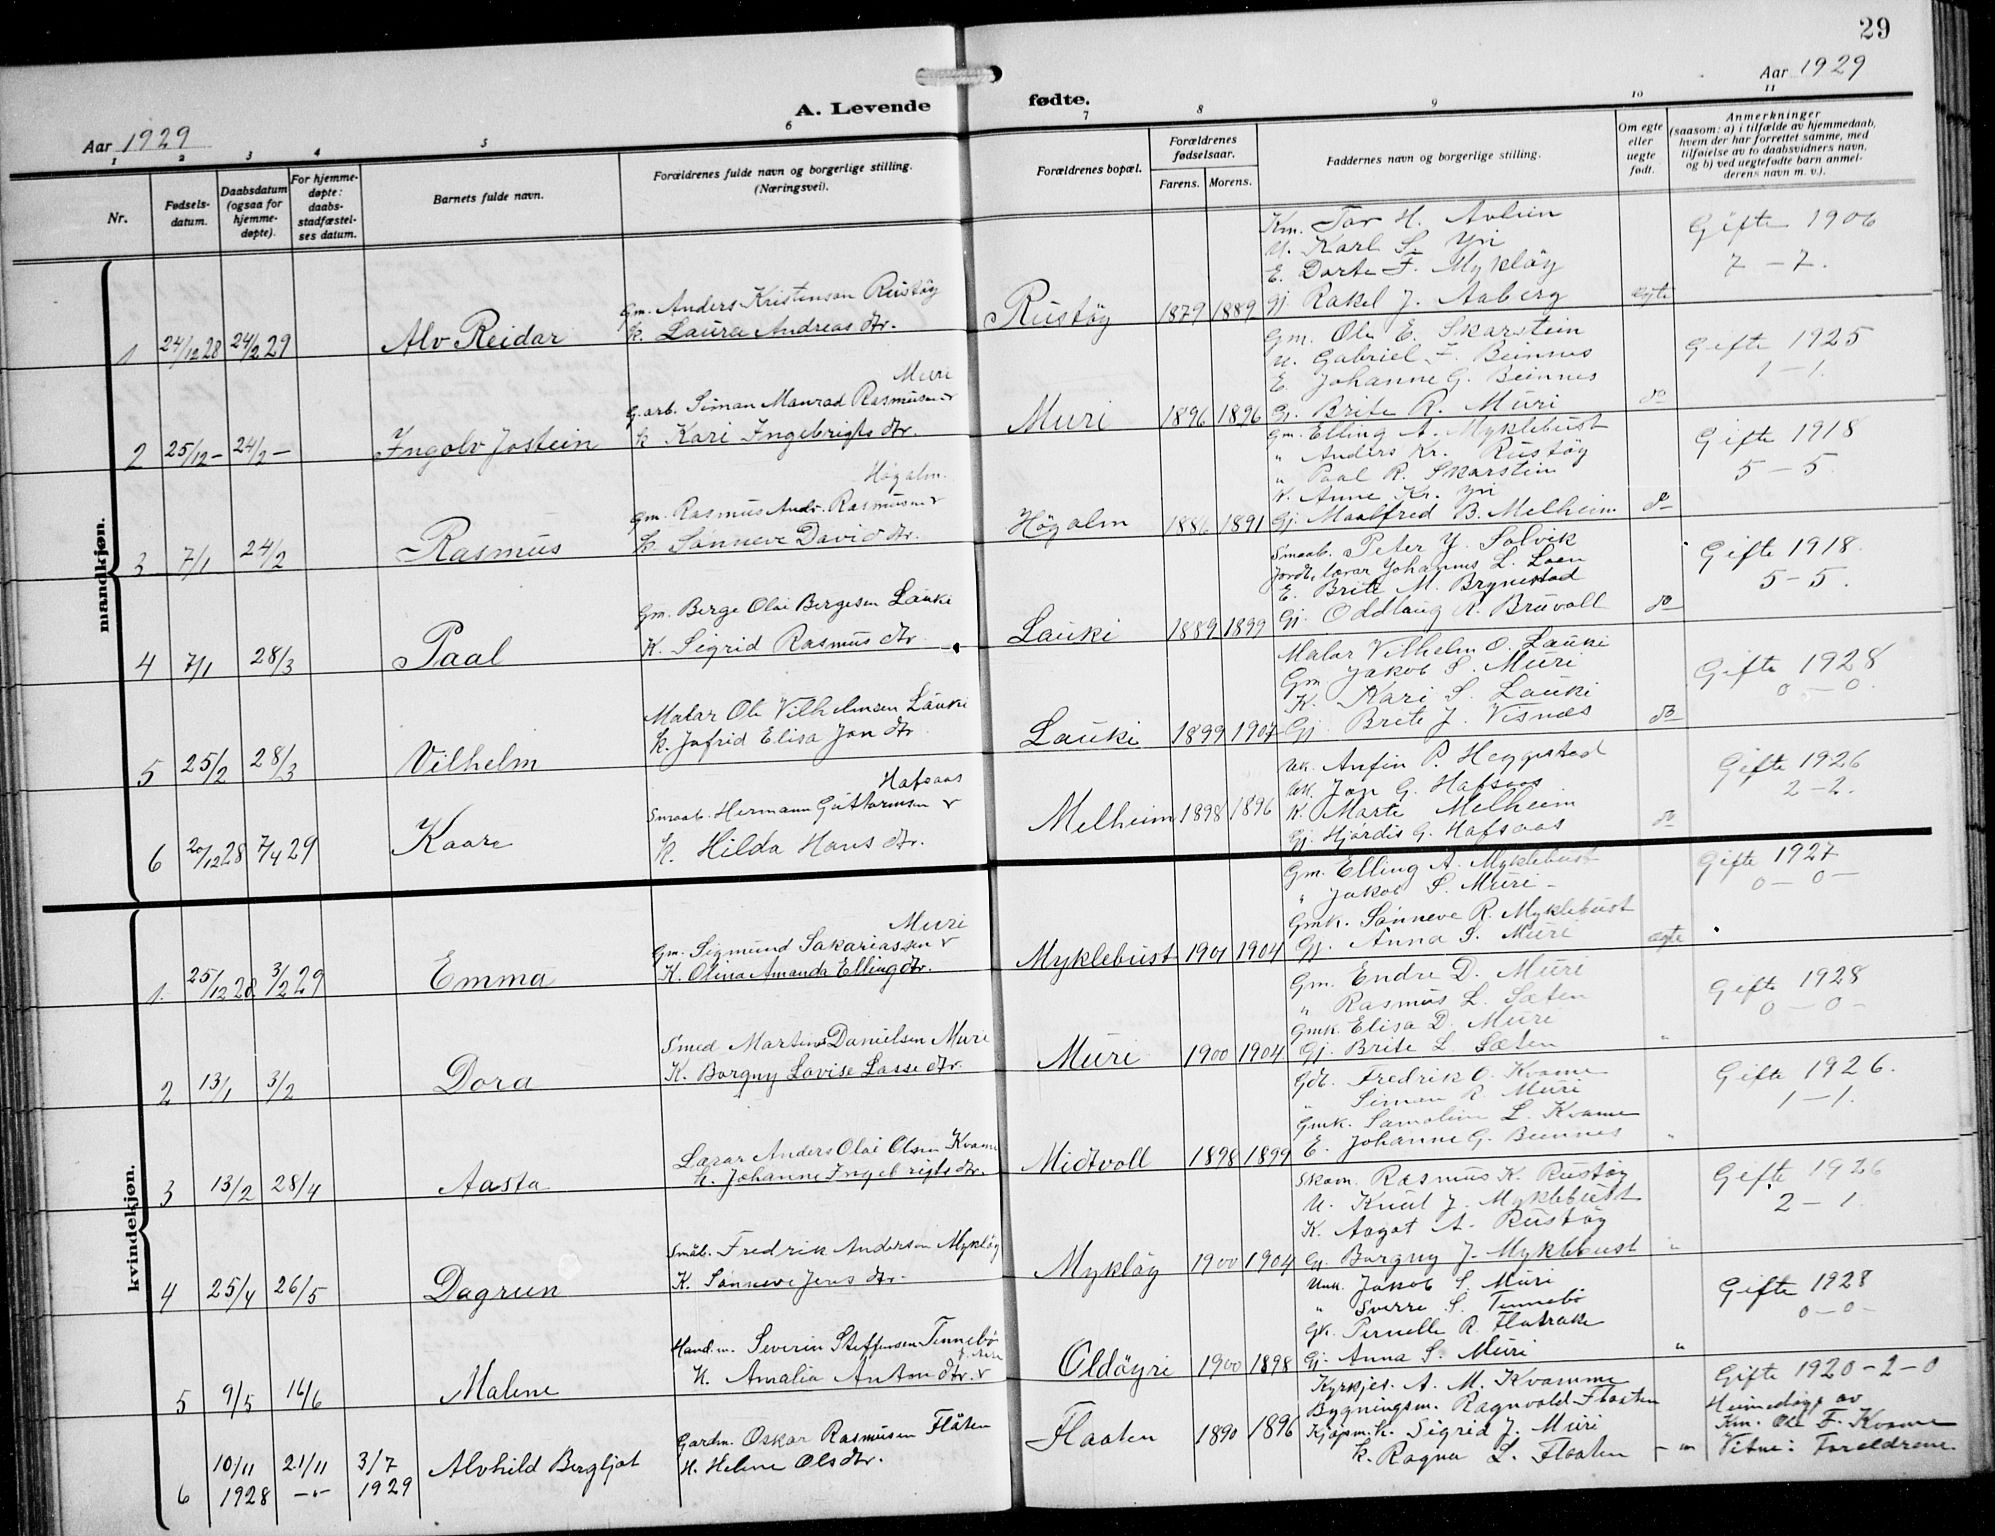 29
Aar 1929
Aar 1929
A. Levende fødte.
1 2 3 4 5 6 7 8 9 10 11
Nr.
Fødsels-
datum.
Daabsdatum
(ogsaa for
hjemme-
døpte).
For hjemme-
døpte:
daabs-
stadfæstel-
ses datum.
Barnets fulde navn.
Forældrenes fulde navn og borgerlige stilling.
(Næringsvei).
Forældrenes bopæl.
Forældrenes
fødselsaar.
Farens. Morens.
Faddernes navn og borgerlige stilling.
Om egte
eller
uegte
født.
Anmerkninger
(saasom: a) i tilfælde av hjemmedaab,
hvem der har forrettet samme, med
tilføielse av to daabsvidners navn,
og b) ved uegtefødte barn anmel-
derens navn m. v.).
mandkjøn.
1 24/12 28 24/2 29
Alv Reidar
Gm. Anders Kristenson Rustøy
k. Laura Andreasdtr.
Rustøy 1879 1889
Km. Tor H. Avlein
U. Karl S. Yri
E. Dorte F. Mykløy
Gj. Rakel J. Aaberg
egte
Gifte 1906
7 – 7.
2 25/12 – 24/2 –
Ingolv Jostein
Muri
G.arb. Simon Monrad Rasmusen
k. Kari Ingebrigtsdtr.
Muri 1896 1896
Gm. Ole E. Skarstein
U. Gabriel F. Beinnes
E. Johanne G. Beinnes
Gj. Brite R. Muri
do
Gifte 1925
1 – 1.
3 7/1 24/2
Rasmus
Høgalm.
Gm. Rasmus Andr. Rasmusen
k. Sønneve Daviddtr.
Høgalm 1886 1891
Gm. Elling A. Myklebust
" Anders Kr. Rustøy
" Paal R. Skarstein
K. Anne Kr. Yri
Gj. Maalfred B. Melheim
do
Gifte 1918
5 – 5
4 7/1 28/3
Paal
Gm. Berge Olai Bergesen Lauki
K. Sigrid Rasmusdtr.
Lauki 1889 1899
Smaab. Peter Y. Solvik
Jordb. lærar Johannes L. Loen
E. Brite M. Brynestad
Gj. Oddlaug R. Bruvoll
do
Gifte 1918.
5 – 5.
5 25/2 28/3
Vilhelm
Malar Ole Vilhelmsen Lauki
k. Jofrid Elisa Jondtr.
Lauki 1899 1907
Malar Vilhelm O. Lauki
Gm Jakob S. Muri
K. Kari S. Lauki
Gj. Brite J. Visnes
do
Gifte 1928
0 – 0.
6 20/12 28 7/4 29
Kaare
Hafsaas
Smaab. Hermann Guttormsen
k. Hilda Hansdtr.
Melheim 1898 1896
Uk. Anfin P. Heggestad
Uk. Jon G. Hafsaas
K. Marte Melheim
Gj. Hjørdis G. Hafsaas
do
Gifte 1926
2 – 2.
kvindekjøn.
1. 25/12 28 3/2 29
Emma
Muri
Gm. Sigmund Sakariassen
K. Olina Amanda Ellingdtr.
Myklebust 1901 1904
Gm. Elling A. Myklebust
" Jakob S. Muri –
Gmk. Sønneve R. Myklebust
Gj. Anna S. Muri
egte
Gifte 1927
0 – 0 –
2 13/1 3/2
Dora
Smed Martines Danielsen Muri
K. Borgny Lovise Lassedtr.
Muri 1900 1904
Gm. Endre D. Muri
" Rasmus L. Sæten
Gmk. Elisa D. Muri
Gj. Brite L. Sæten
"
Gifte 1928
0 – 0 –
3 13/2 28/4
Aasta
Lærar Anders Olai Olsen Kvame
k. Johanne Ingebrigtsdtr.
Midtvoll 1898 1899
Gdb. Fredrik O. Kvame
" Simon R. Muri
Gmk. Samoline L. Kvame
E. Johanne G. Beinnes
"
Gifte 1926.
1 – 1.
4 25/4 26/5
Dagrun
Småb. Fredrik Anderson Mykløy
K. Sønneve Jensdtr.
Mykløy 1900 1904
Skom. Rasmus K. Rustøy
U. Knut J. Myklebust
K. Aagot A. Rustøy
Gj. Borgny J. Myklebust
"
Gifte 1926
2 – 1
5 9/5 16/6
Malene
Hand.m. Severin Steffensen Tennebø
K. Amalia Antondtr.
Oldøyri 1900 1898
Unk. Jakob S. Muri
" Sverre S. Tennebø
Gk. Pernelle R. Flatraki
Gj. Anna S. Muri
"
Gifte 1928
0 – 0 –
6 10/11 1928 21/11 –"– 3/7 1929
Alvhild Bergljot
Gardm. Oskar Rasmusen Flåten
K. Helene Olsdtr.
Flaaten 1890 1896
Kyrkjes. A. M. Kvamme
Bygningsm. Ragnvald Flaaten
Kjøpm.k. Sigrid J. Muri
k. Ragna L. Flaaten
– " –
Gifte 1920 – 2 – 0
Heimedøypt av
Km. Ole F. Kvame
Vitne: Foreldrene.